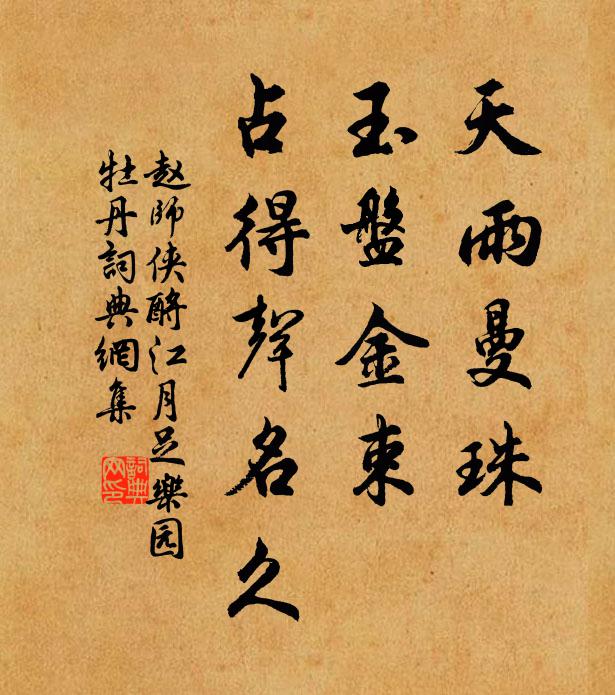 天雨曼珠
玉盤金束
占得聲名久
赵師侠酹江月足樂园
牡丹詞典網集
詞典